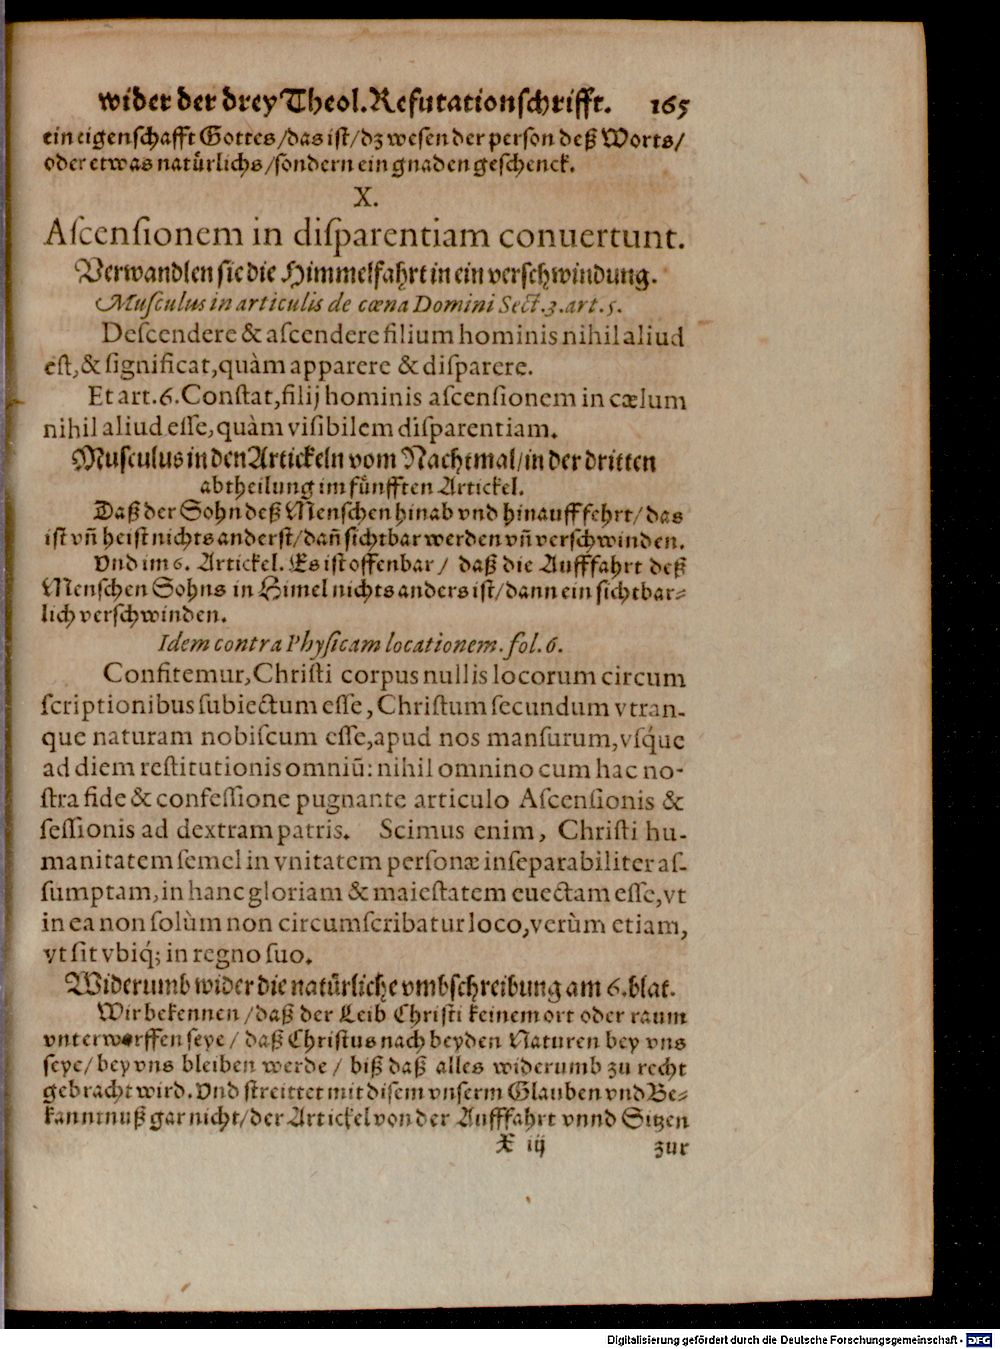 wider der drey Theol. Refutationschrifft. 165
ein eigenschafft Gottes/das ist/dz wesen der person deß Worts/
oder etwas natuͤrlichs/sondern ein gnaden geschenck.
X.
Aſcenſionem in diſparentiam conuertunt.
Verwandlen sie die Himmelfahrt in ein verschwindung.
Muſculus in articulis de cœna Domini Sect. 3. art. 5.
Deſcendere & aſcendere filium hominis nihil aliud
eſt, & ſignificat, quàm apparere & diſparere.
Et art. 6. Conſtat, filij hominis aſcenſionem in cælum
nihil aliud eſſe, quàm viſibilem diſparentiam.
Musculus in den Artickeln vom Nachtmal/in der dritten
abtheilung im fuͤnfften Artickel.
Daß der Sohn deß Menschen hinab vnd hinauff fehrt/das
ist vñ heist nichts anderst/dañ sichtbar werden vñ verschwinden.
Vnd im 6. Artickel. Es ist offenbar/ daß die Aufffahrt deß
Menschen Sohns in Himel nichts anders ist/dann ein sichtbar-
lich verschwinden.
Idem contra Phyſicam locationem. fol. 6.
Confitemur, Chriſti corpus nullis locorum circum
ſcriptionibus ſubiectum eſſe, Chriſtum ſecundum vtran-
que naturam nobiſcum eſſe, apud nos manſurum, vſq́ue
ad diem reſtitutionis omniũ: nihil omnino cum hac no-
ſtra fide & confeſſione pugnante articulo Aſcenſionis &
ſeſſionis ad dextram patris. Scimus enim, Chriſti hu-
manitatem ſemel in vnitatem perſonæ inſeparabiliter aſ-
ſumptam, in hanc gloriam & maieſtatem euectam eſſe, vt
in ea non ſolùm non circumſcribatur loco, verùm etiam,
vt ſit vbiq́; in regno ſuo.
Widerumb wider die natuͤrliche vmbschreibung am 6. blat.
Wir bekennen/daß der Leib Christi keinem ort oder raum
vnterworffen seye/ daß Christus nach beyden Naturen bey vns
seye/ bey vns bleiben werde/ biß daß alles widerumb zu recht
gebracht wird. Vnd streittet mit disem vnserm Glauben vnd Be-
kanntnuß gar nicht/der Artickel von der Aufffahrt vnnd Sitzen
X iij zur
Digitalisierung gefördert durch die Deutsche Forschungsgemeinschaft - DFG